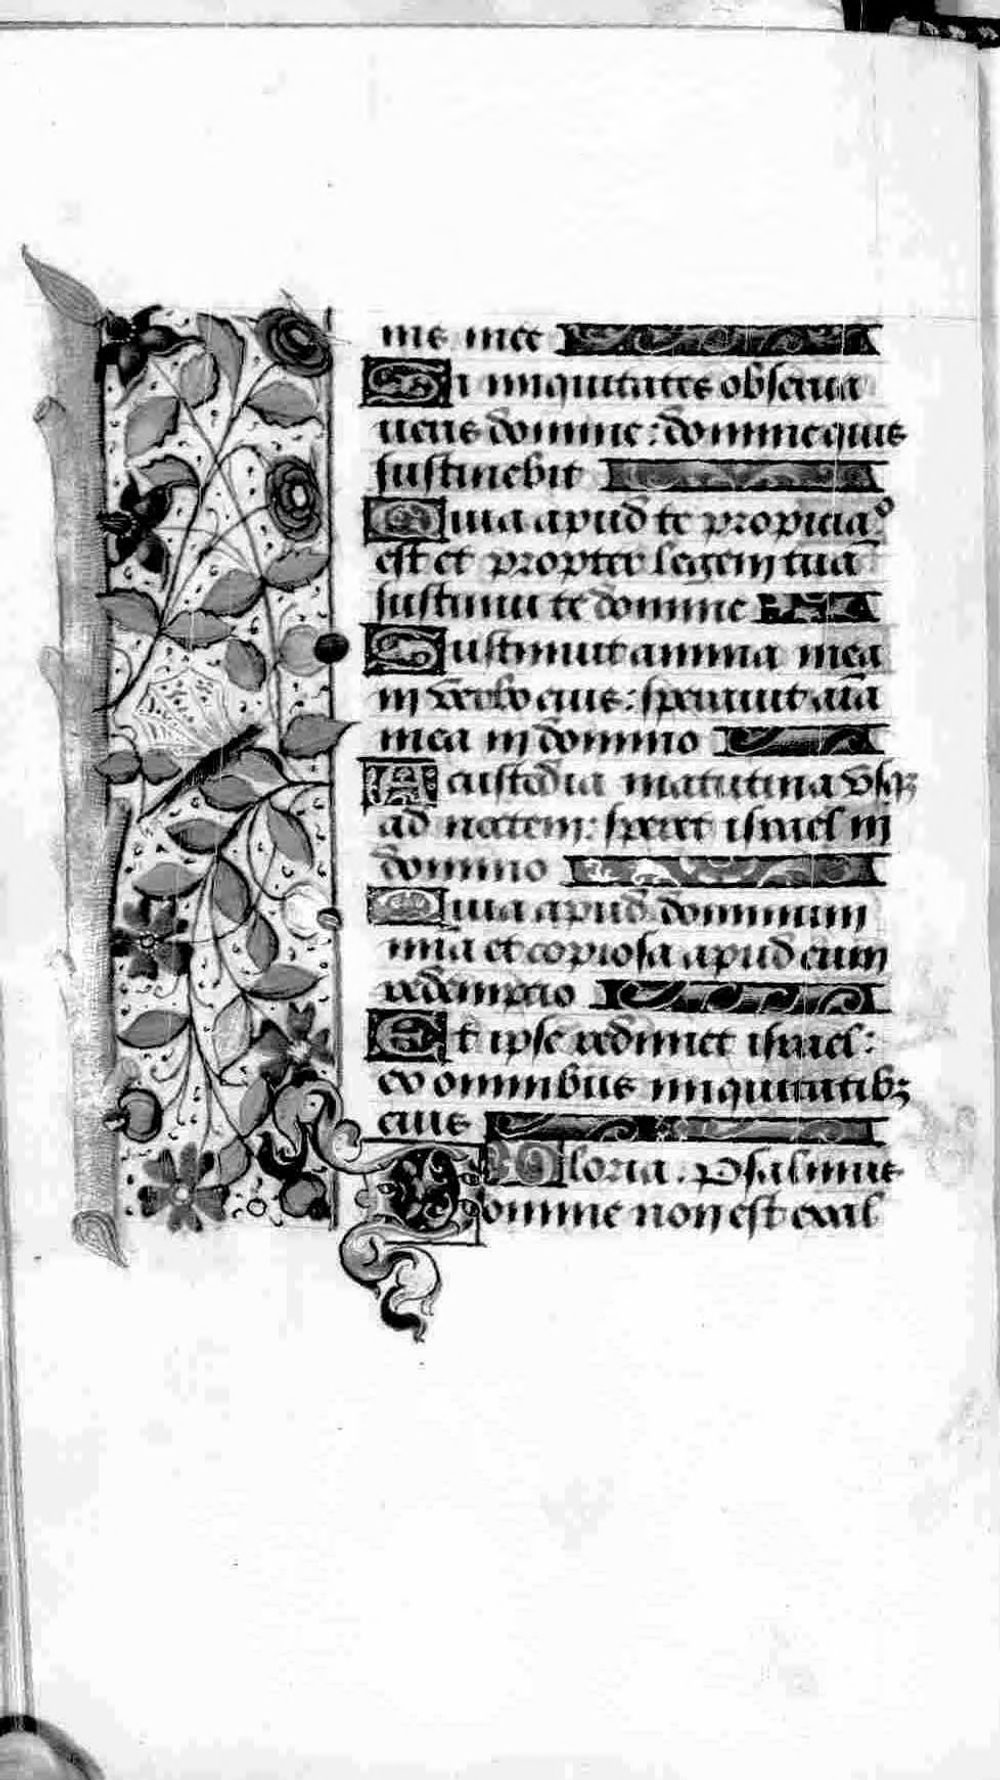 nis mee
Si iniquitates obserua
ueris domine: domine quis
sustinebit
Quia apud te propiciaº
est et propter legem tuā
sustinui te domine
Sustinuit anima mea
in verbo eius: sperauit aīa
mea in domino
A custodia matutina vsqꝫ
ad noctem: speret israel in
domino
Quia apud dominum
mīa et copiosa apud eum
redempcio
Et ipse redimet israel:
ex omnibus iniquitatibꝫ
eius
Gloria. Psalmus
Domine non est exal